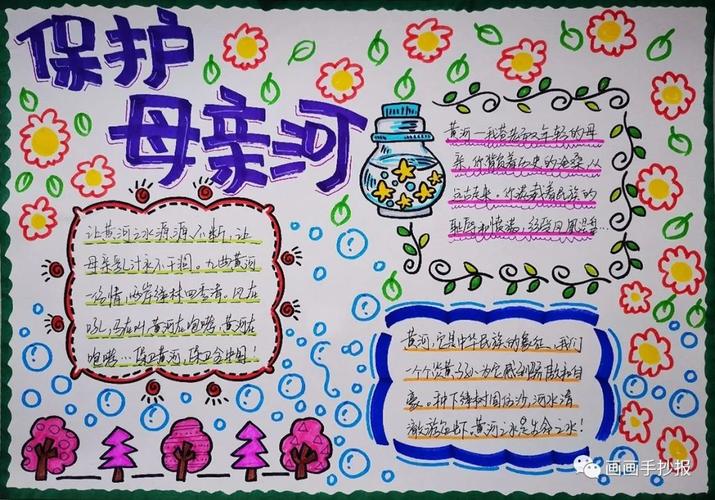 保护
母亲河
让黄河之水源源不断,让
母亲乳汁永不干涸。九曲黄河
一色情,两岸绿林四季清,风在
吼,马在叫,黄河在咆哮,黄河在
咆哮…保卫黄河,保卫全中国!
黄河—我苍老又年轻的母
亲,你背负着历史的沧桑从
远古走来,你满载着民族的
耻辱和愤满,经
黄河,它是中华民族的象征,我们
一个个炎黄子孙为它感到骄傲和自
豪。种下绿树固住沙,河水清
澈 黄河之水是生命之水!
画画手抄报